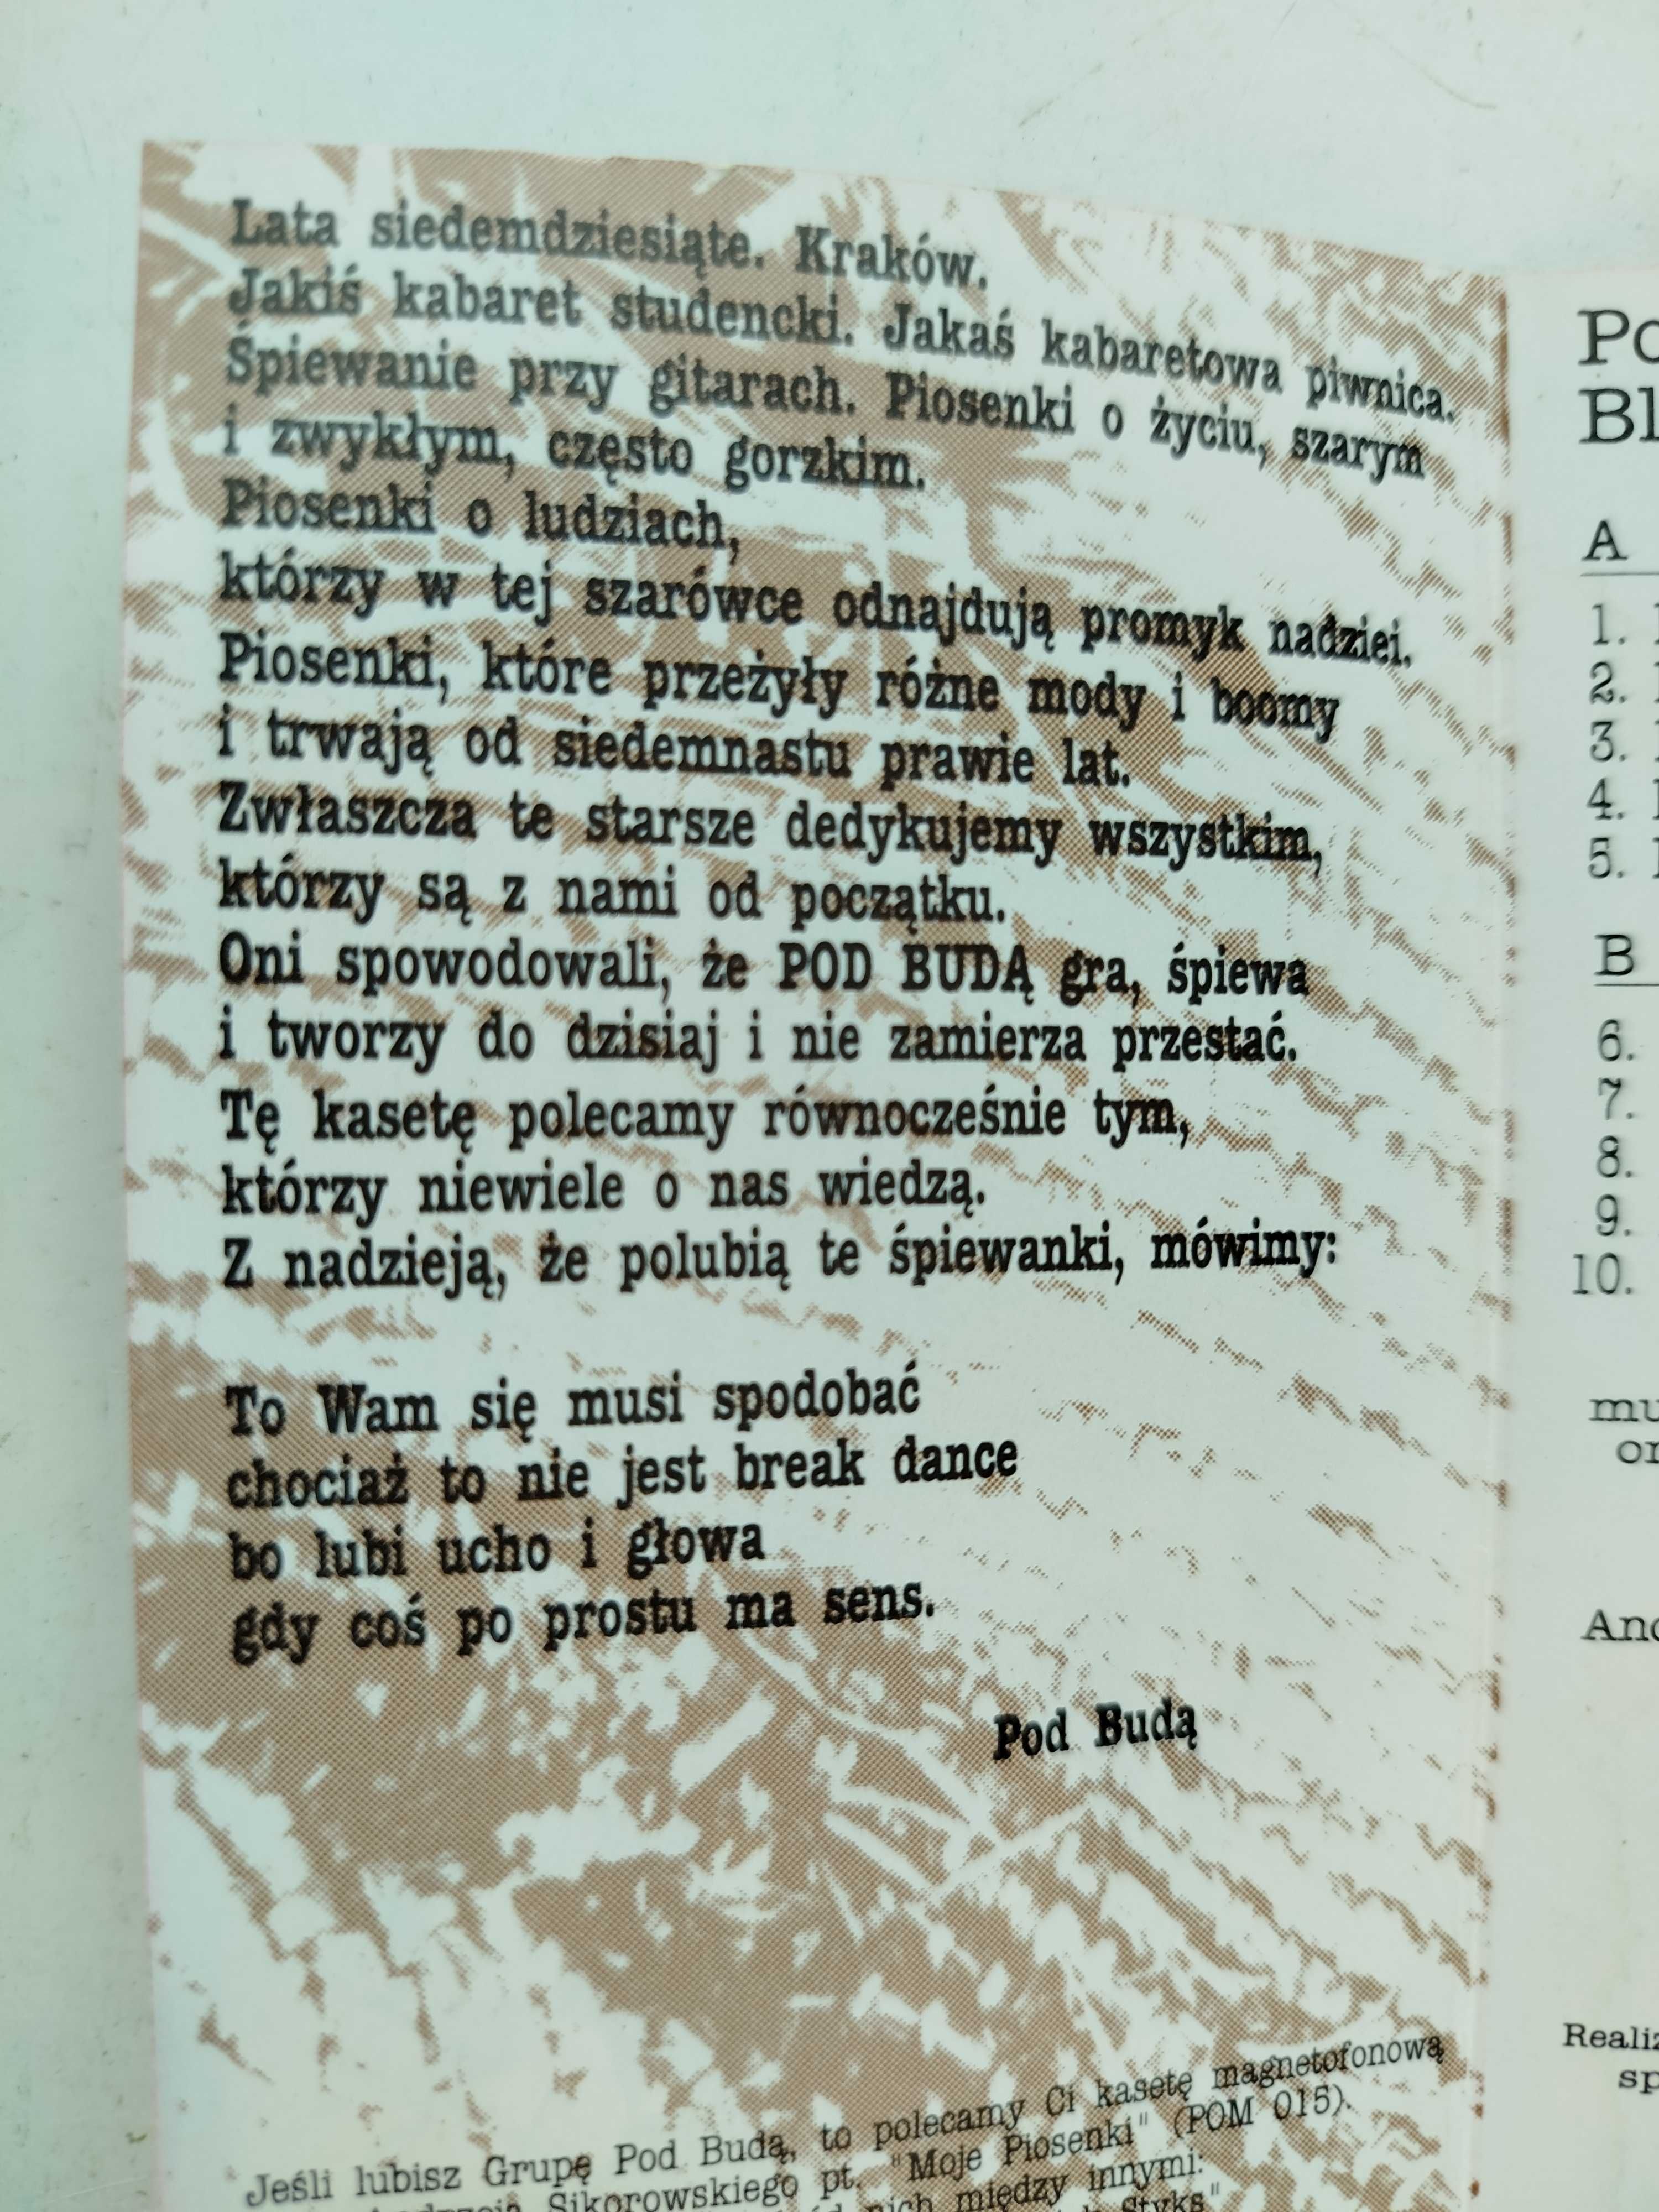 Lata siedemdziesiąte. Kraków.
Jakiś kabaret studencki. Jakaś kabaretowa piwnica.
Śpiewanie przy gitarach. Piosenki o życiu, szarym
i zwykłym, często gorzkim.
Piosenki o ludziach,
którzy w tej szarówce odnajdują promyk nadziei.
Piosenki, które przeżyły różne mody i boomy
i trwają od siedemnastu prawie lat.
Zwłaszcza te starsze dedykujemy wszystkim,
którzy są z nami od początku.
Oni spowodowali, że POD BUDĄ gra, śpiewa
i tworzy do dzisiaj i nie zamierza przestać.
Tę kasetę polecamy równocześnie tym,
którzy niewiele o nas wiedzą.
Z nadzieją, że polubią te śpiewanki, mówimy:
To Wam się musi spodobać
chociaż to nie jest break dance
bo lubi ucho i głowa
gdy coś po prostu ma sens.
Pod Budą
Jeśli lubisz Grupę Pod Budą, to polecamy Ci kasetę magnetofonową
Sikorowskiego pt. "Moje Piosenki" (POM 015).
nich między innymi:
Styks"
Po
Bl
A
1.
2.
3.
4.
5.
B
6.
7.
8.
9.
10.
mu
or
And
Realiz
sp